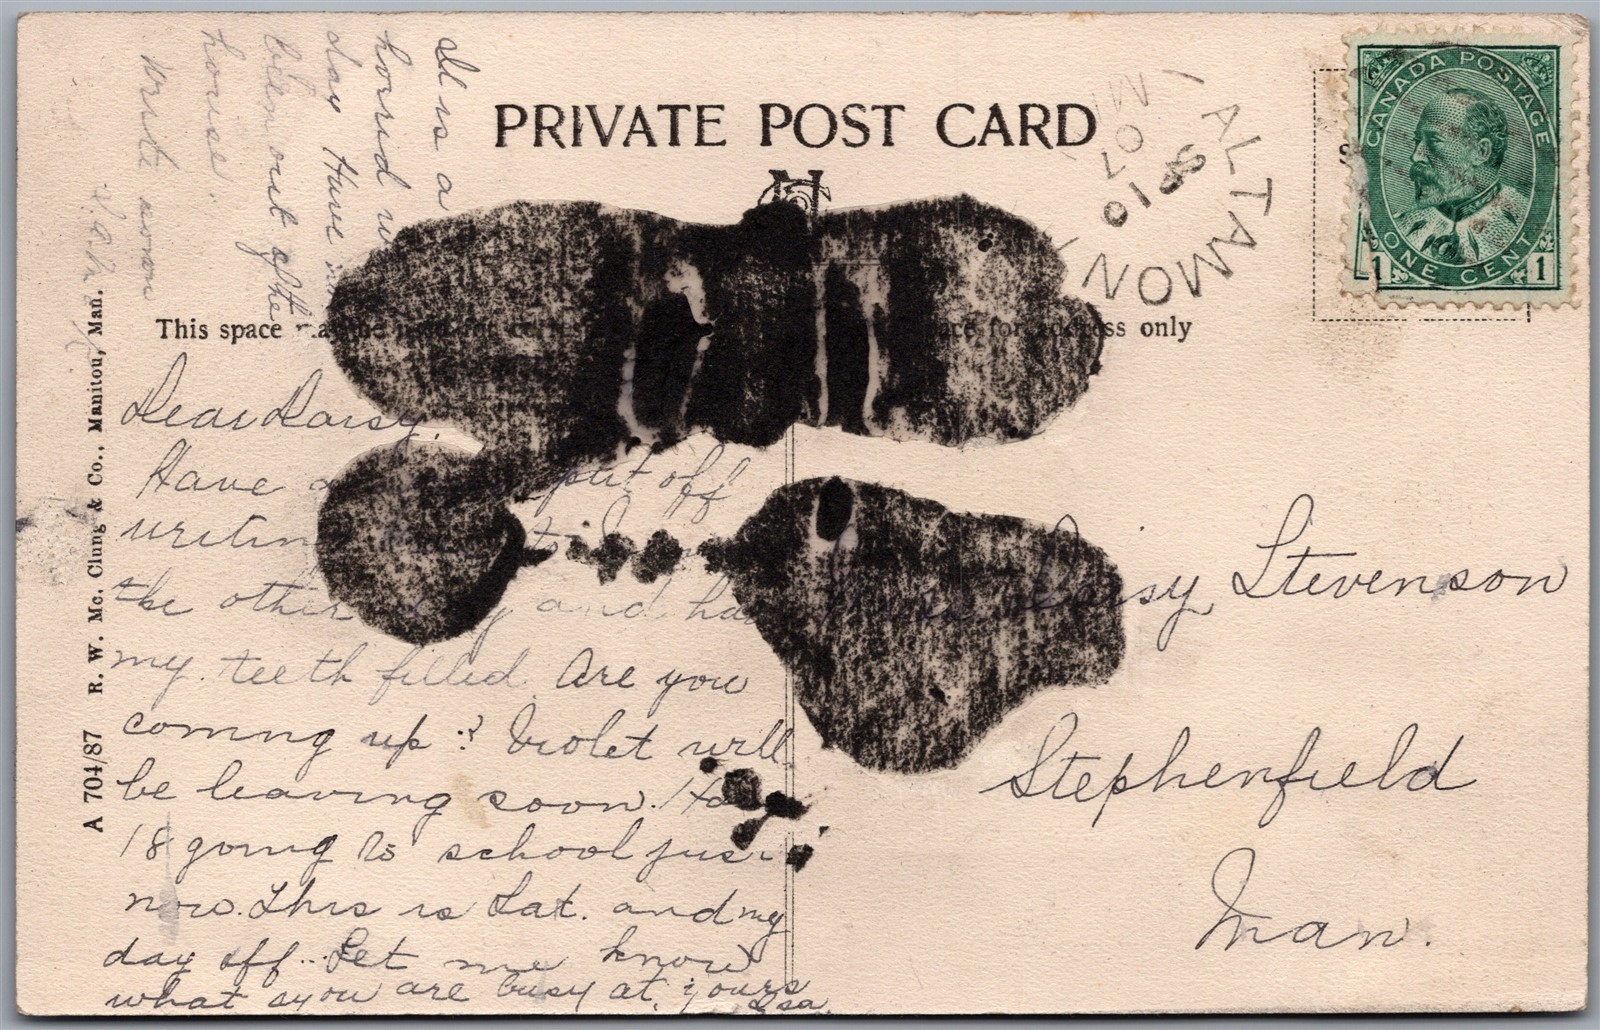 PRIVATE POST CARD
CANADA POSTAGE
ONE CENT
1 1
ALTAMON
SP 10
07
This space for address only
A 704/87 R. W. Mc. Clung & Co., Manitou, Man.
It is a
horrid
day Have
been out of the
house.
Write soon
Dear Daisy.
Have put off
writing
the other and
my teeth filled. Are you
coming up? Violet will
be leaving soon.
18 going to school just
now. This is Sat. and my
day off. Let me know
what you are busy at. yours
Isa.
Daisy Stevenson
Stephenfield
Man.